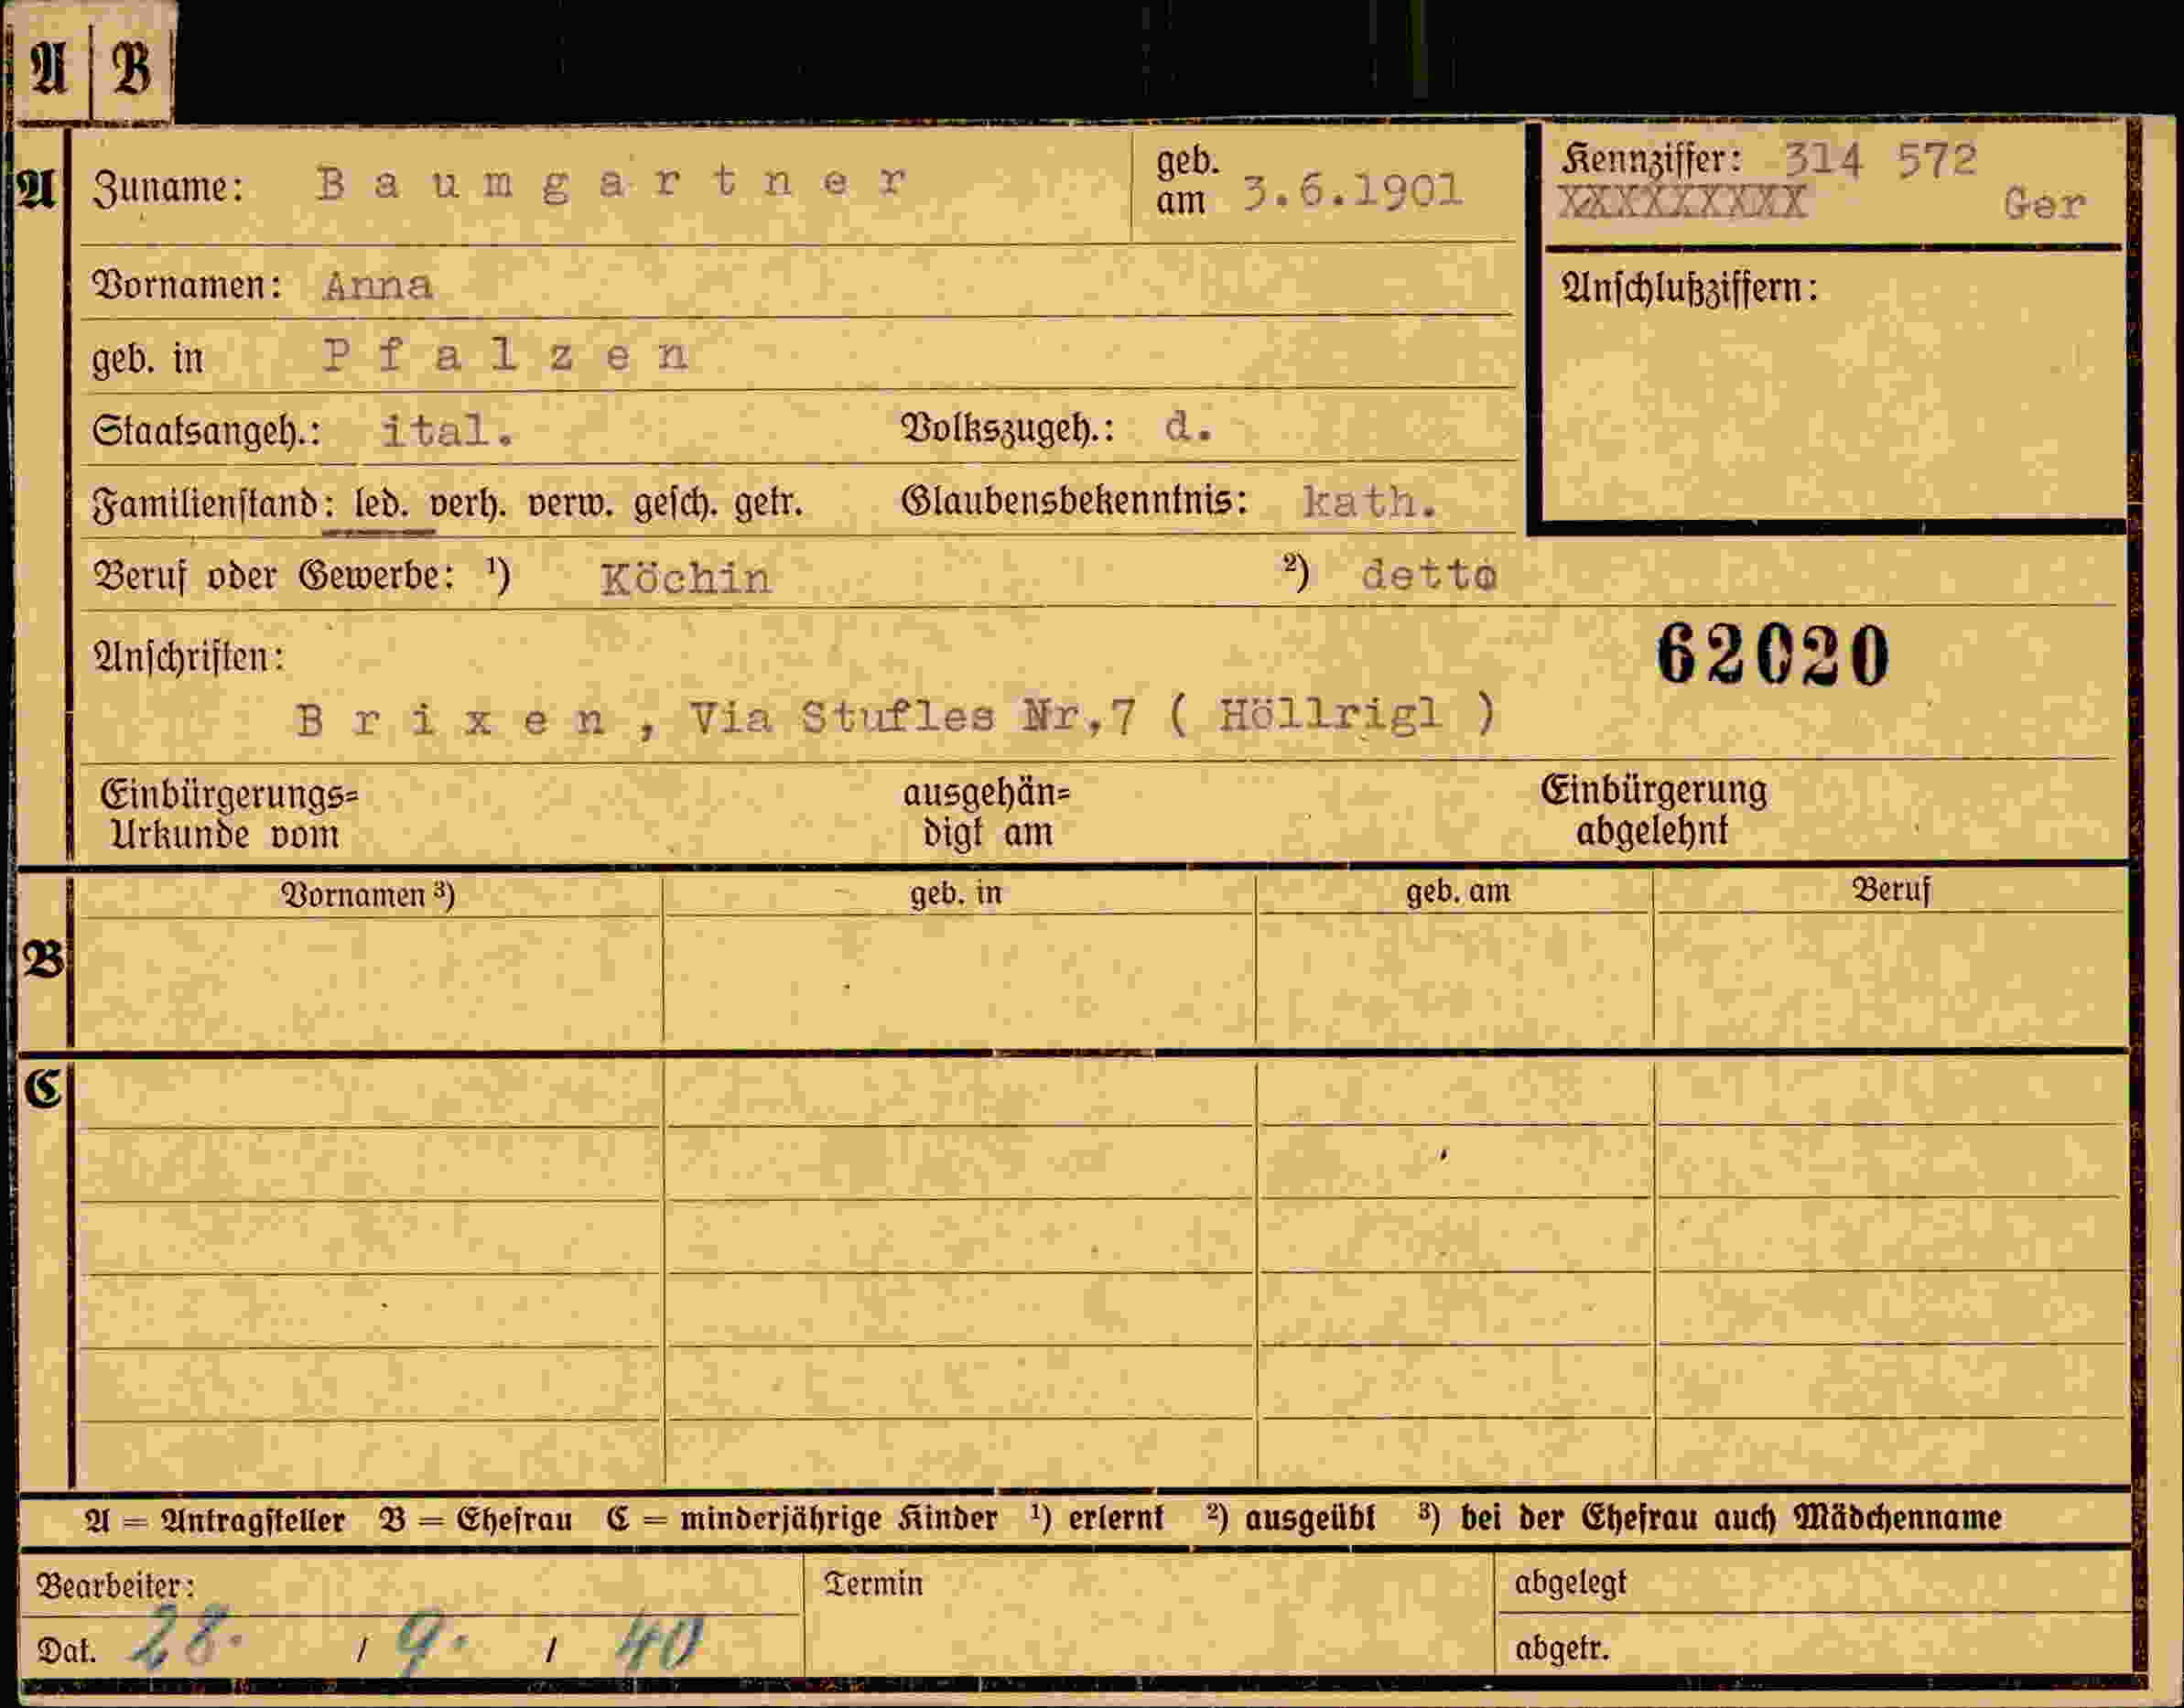 A B
A Zuname: Baumgartner geb. am 3.6.1901 Kennziffer: 314 572
XXXXXXXXX Ger
Vornamen: Anna Anschlußziffern:
geb. in Pfalzen
Staatsangeh.: ital. Volkszugeh.: d.
Familienstand: led. verh. verw. gesch. getr. Glaubensbekenntnis: kath.
Beruf oder Gewerbe: ¹) Köchin ²) detto
Anschriften: 62020
Brixen, Via Stufles Nr,7 ( Höllrigl )
Einbürgerungs= ausgehän= Einbürgerung
Urkunde vom digt am abgelehnt
Vornamen ³) geb. in geb. am Beruf
B
C
A = Antragsteller B = Ehefrau C = minderjährige Kinder ¹) erlernt ²) ausgeübt ³) bei der Ehefrau auch Mädchenname
Bearbeiter: Termin abgelegt
Dat. 28. / 9. / 40 abgetr.